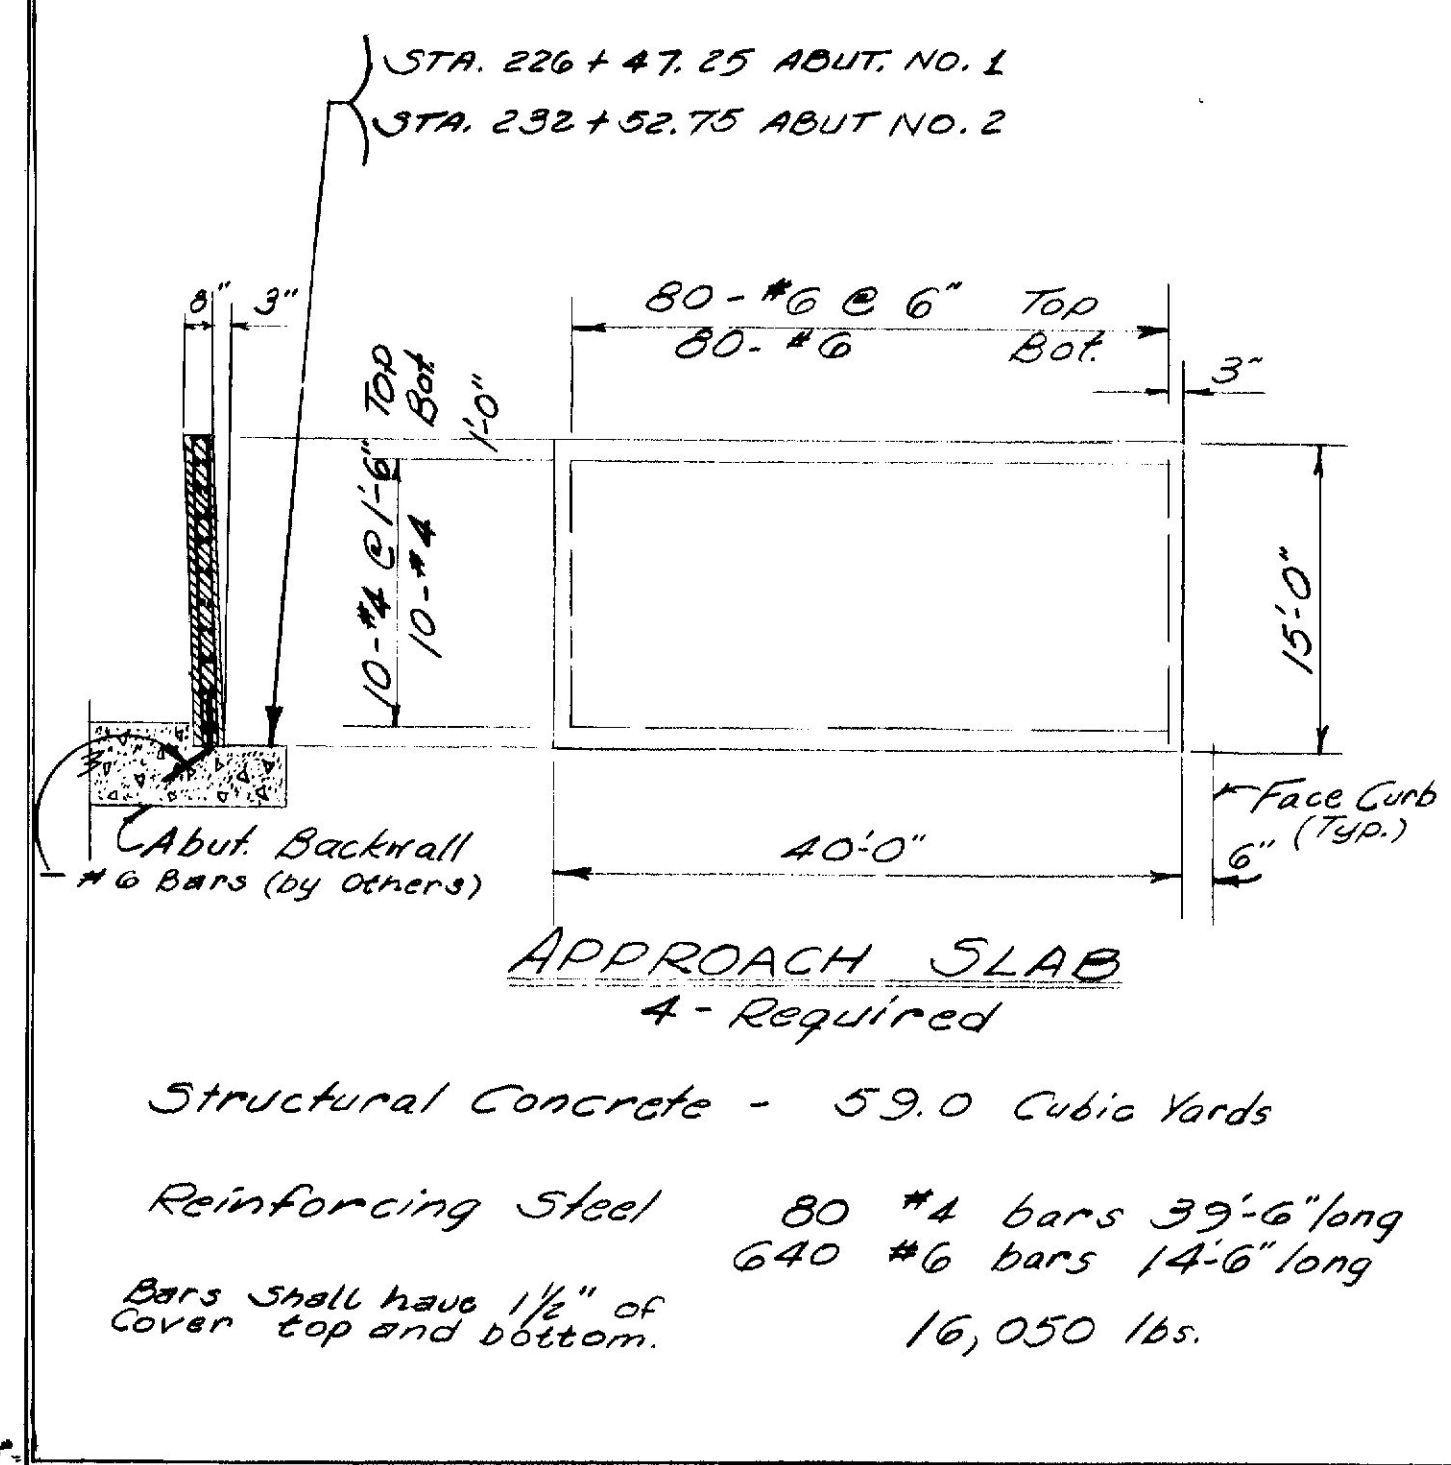 STA. 226 + 47.25 ABUT. NO. 1
STA. 232 + 52.75 ABUT NO. 2
8" 3"
80 - #6 @ 6" Top
80 - #6 Bot.
3"
10-#4 @ 1'-6" Top
10-#4 Bot.
1'-0"
15'-0"
Face Curb
(Typ.)
6"
40'-0"
Abut. Backwall
#6 Bars (by Others)
APPROACH SLAB
4 - Required
Structural Concrete - 59.0 Cubic Yards
Reinforcing Steel 80 #4 bars 39'-6" long
640 #6 bars 14'-6" long
Bars shall have 1 1/2" of
Cover top and bottom.
16,050 lbs.